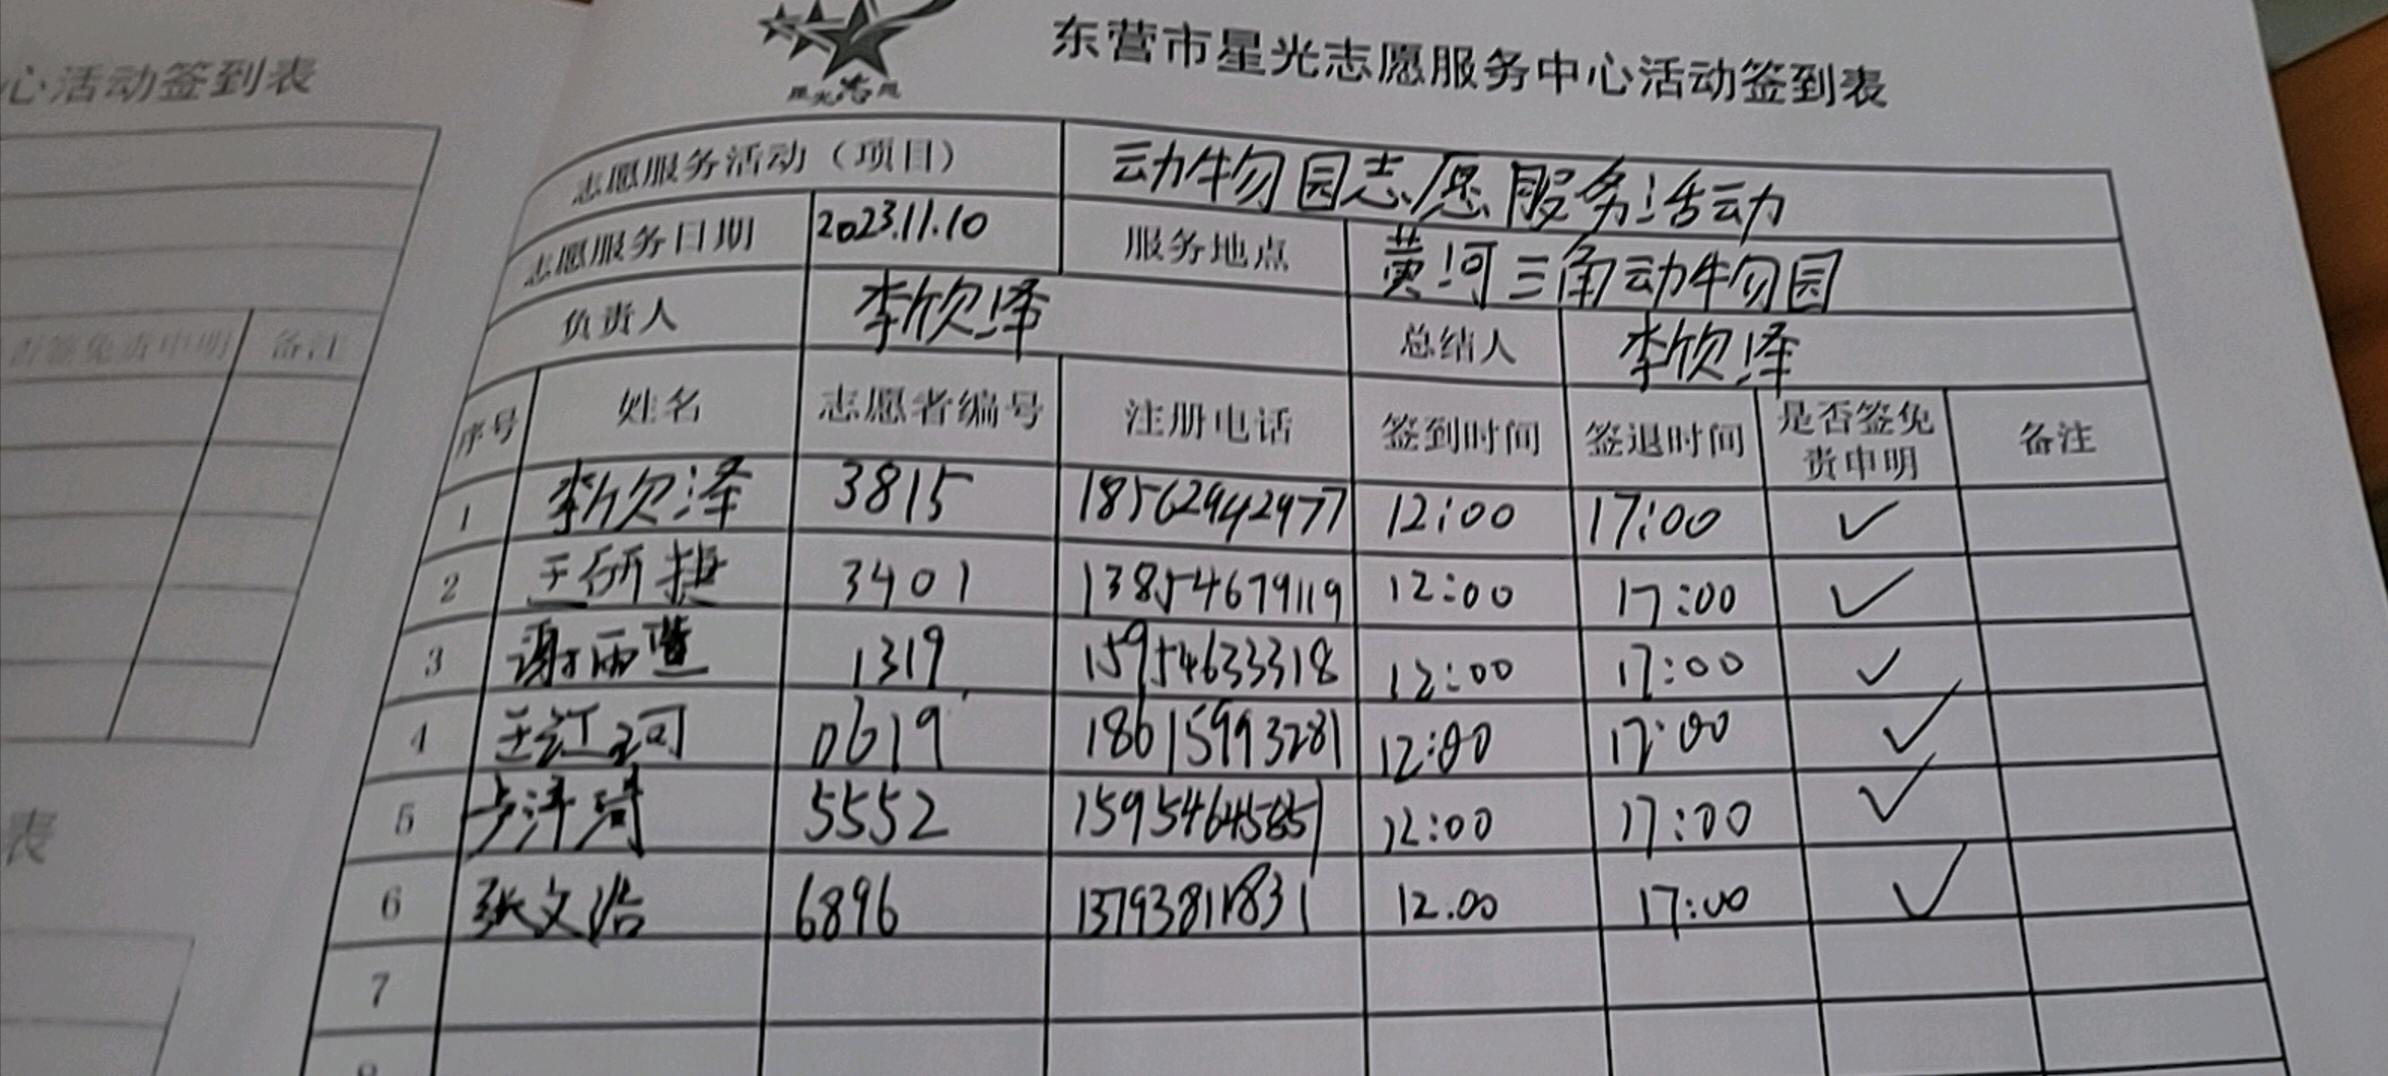 心活动签到表
否签免责申明 备注
表
星光志愿
东营市星光志愿服务中心活动签到表
志愿服务活动（项目） 动物园志愿服务活动
志愿服务日期 2023.11.10 服务地点 黄河三角动物园
负责人 李欣泽 总结人 李欣泽
序号 姓名 志愿者编号 注册电话 签到时间 签退时间 是否签免责申明 备注
1 李欣泽 3815 18562942977 12:00 17:00 ✓
2 王研捷 3401 13854679119 12:00 17:00 ✓
3 谢雨萱 1319 15954633318 12:00 17:00 ✓
4 王江河 0619 18615993281 12:00 17:00 ✓
5 卢洋琦 5552 12:00 17:00 ✓
6 张文浩 6896 13793811831 12.00 17:00 ✓
7